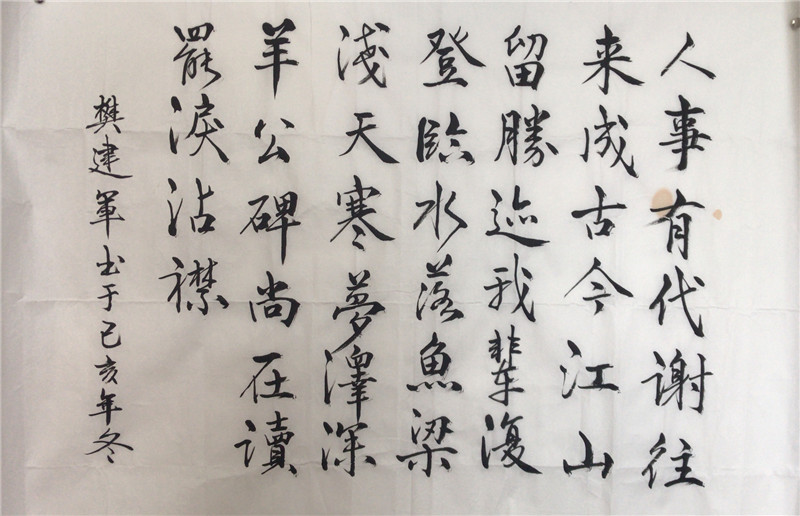 人事有代谢往
来成古今江山
留勝迹我輩復
登臨水落魚梁
淺天寒夢澤深
羊公碑尚在讀
罷淚沾襟
樊建軍书于己亥年冬